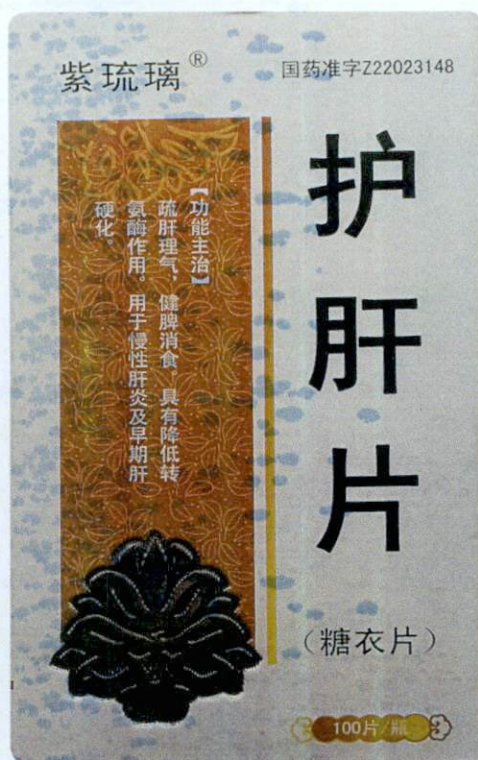 紫琉璃®
国药准字Z22023148
护肝片
【功能主治】
疏肝理气，健脾消食。具有降低转
氨酶作用。用于慢性肝炎及早期肝
硬化。
（糖衣片）
100片/瓶